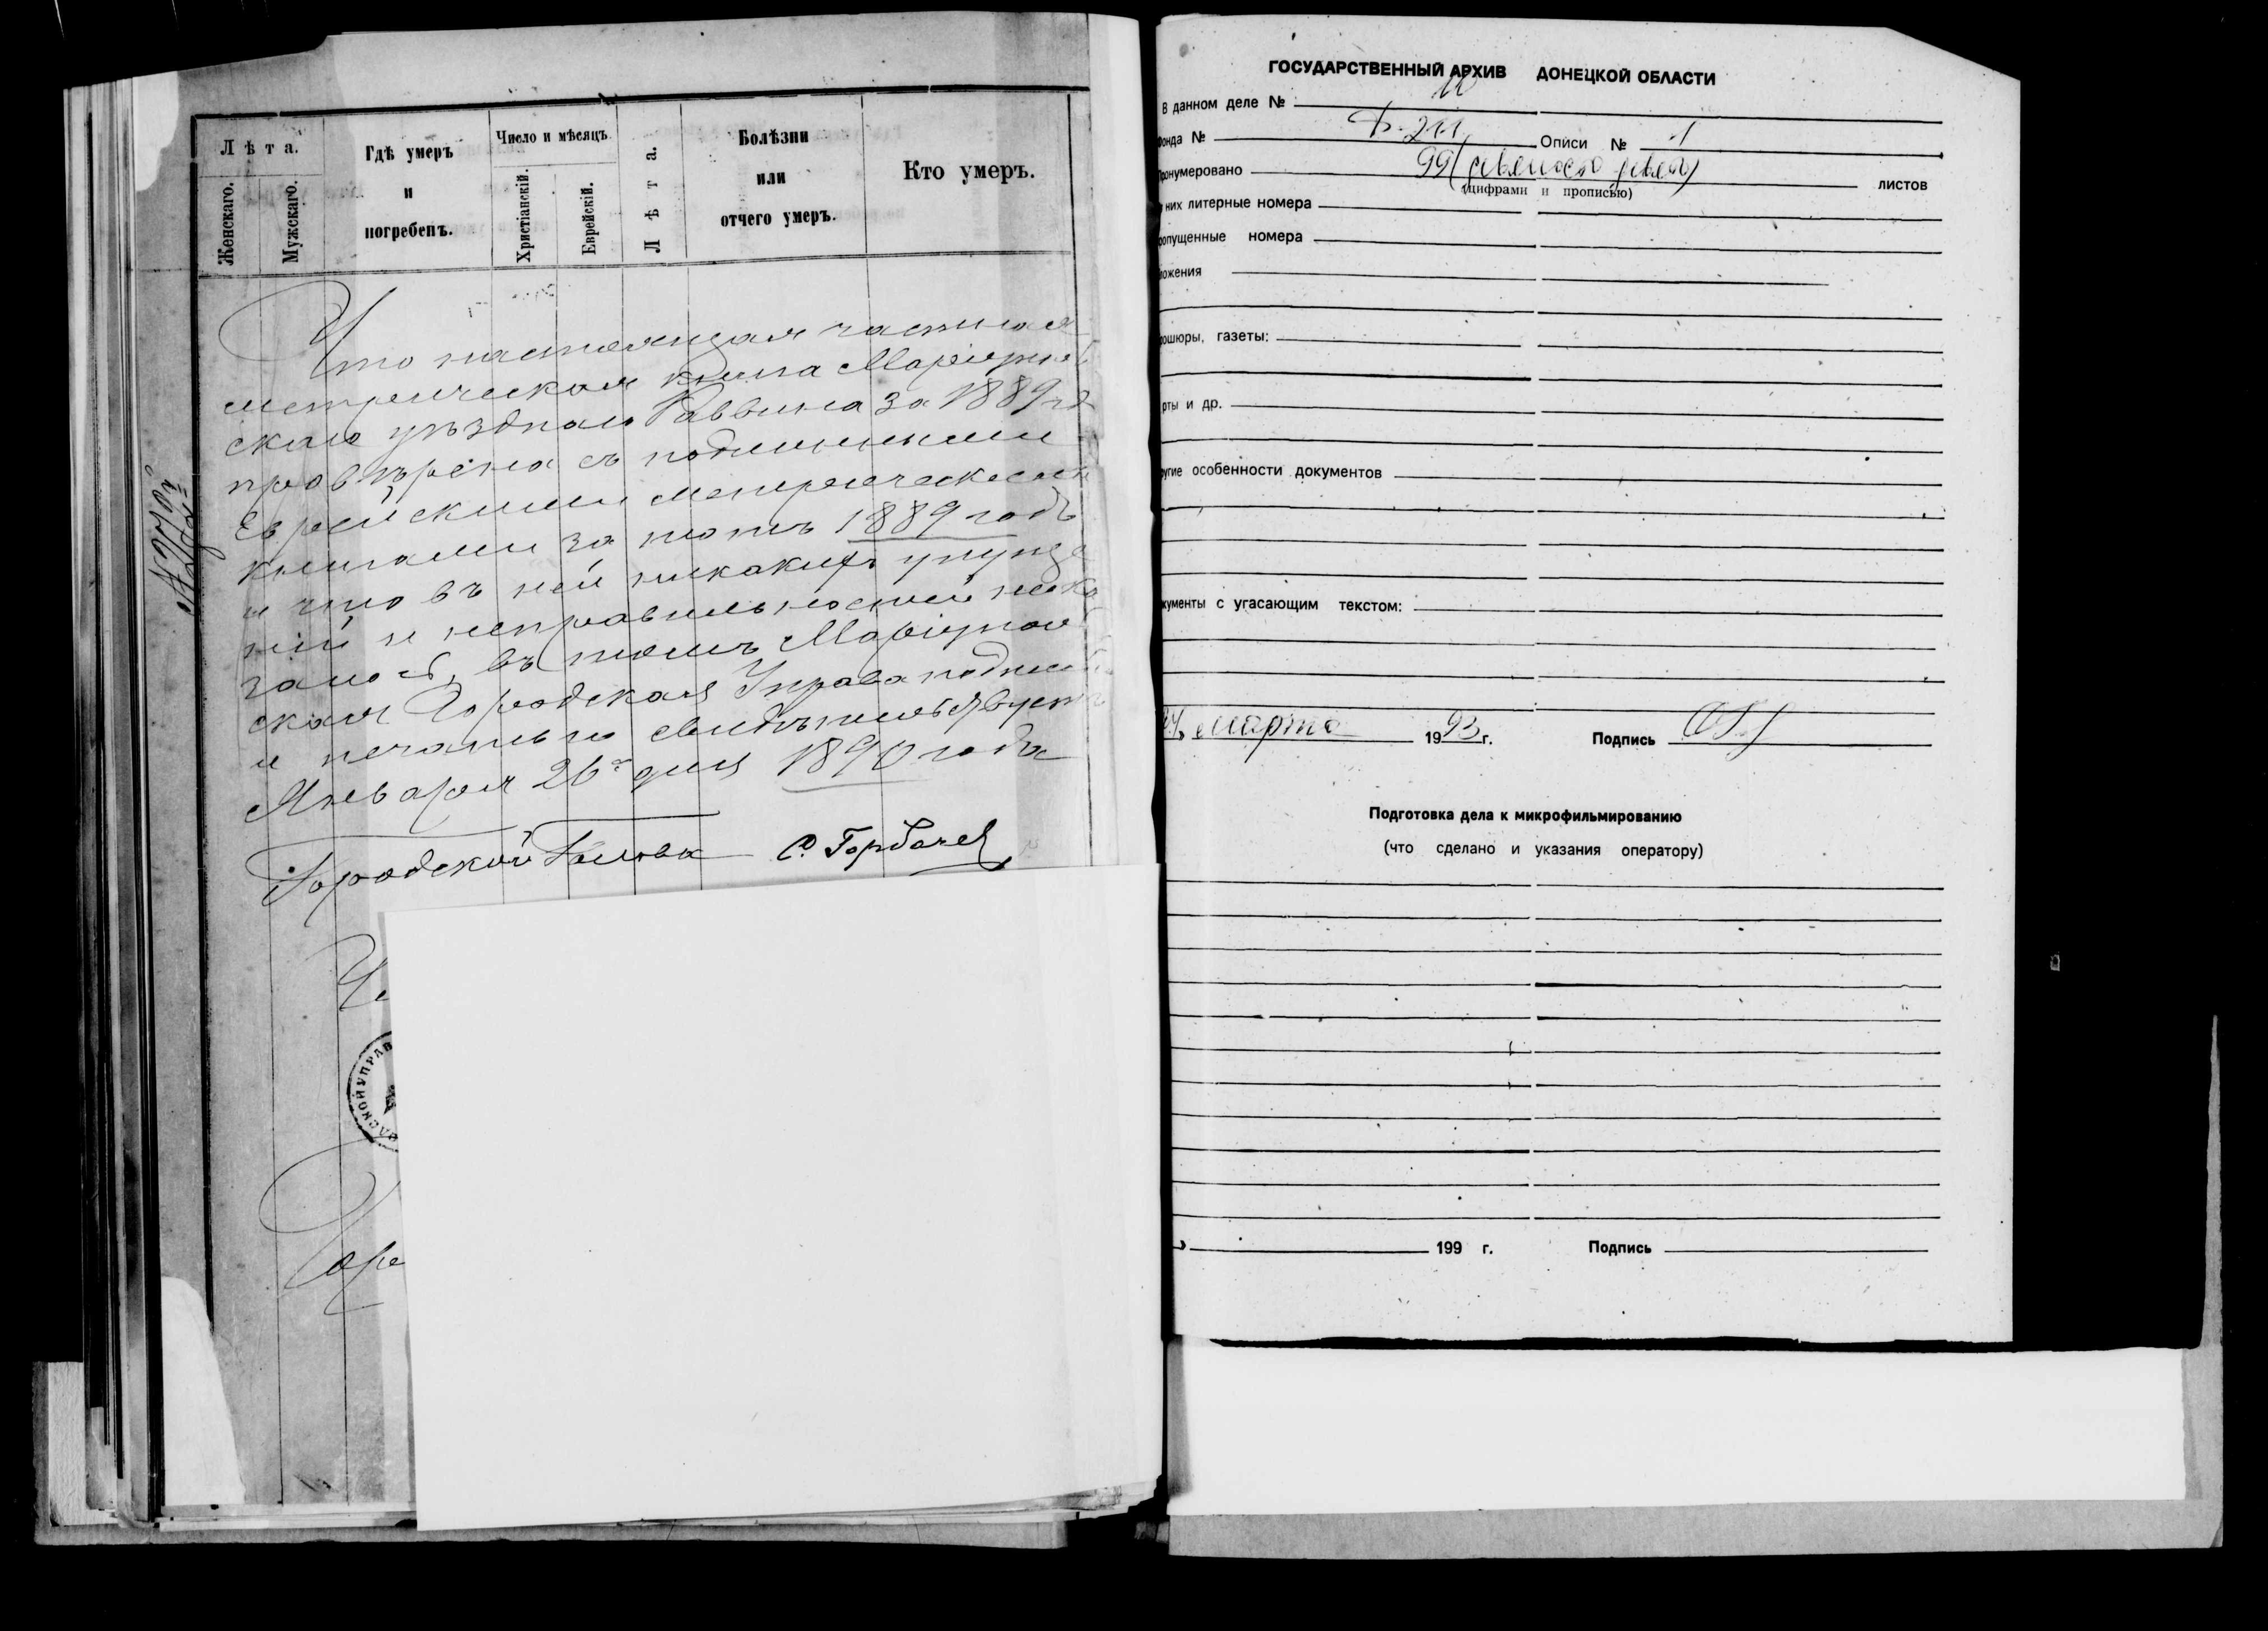 Лѣта.
Женскаго.
Мужскаго.
Гдѣ умеръ
и
погребенъ.
Число и мѣсяцъ.
Христіанскій.
Еврейскій.
Лѣта.
Болѣзни
или
отчего умеръ.
Кто умеръ.
Что настоящая частная
метрическая книга Маріуполь
скаго уѣзднаго Раввина за 1889 год
провѣрена съ подлинными
Еврейскими метрическими
книгами за тотъ 1889 годъ
и что въ ней никакихъ упуще
ній и неправильностей не ока
залось, въ томъ Маріуполь
ская Городская Управа подписью
и печатью свидѣтельствуетъ
Января 26 дня 1890 года
Городской Голова С. Горбачев
СКОЙ УПРАВ
Горо
ГОСУДАРСТВЕННЫЙ АРХИВ ДОНЕЦКОЙ ОБЛАСТИ
В данном деле № 10
фонда № Ф-211 Описи № 1
Пронумеровано 99 (девяносто девять) листов
(цифрами и прописью)
них литерные номера
опущенные номера
ложения
ошюры, газеты:
рты и др.
ругие особенности документов
кументы с угасающим текстом:
24 марта 1993 г. Подпись
Подготовка дела к микрофильмированию
(что сделано и указания оператору)
199 г. Подпись